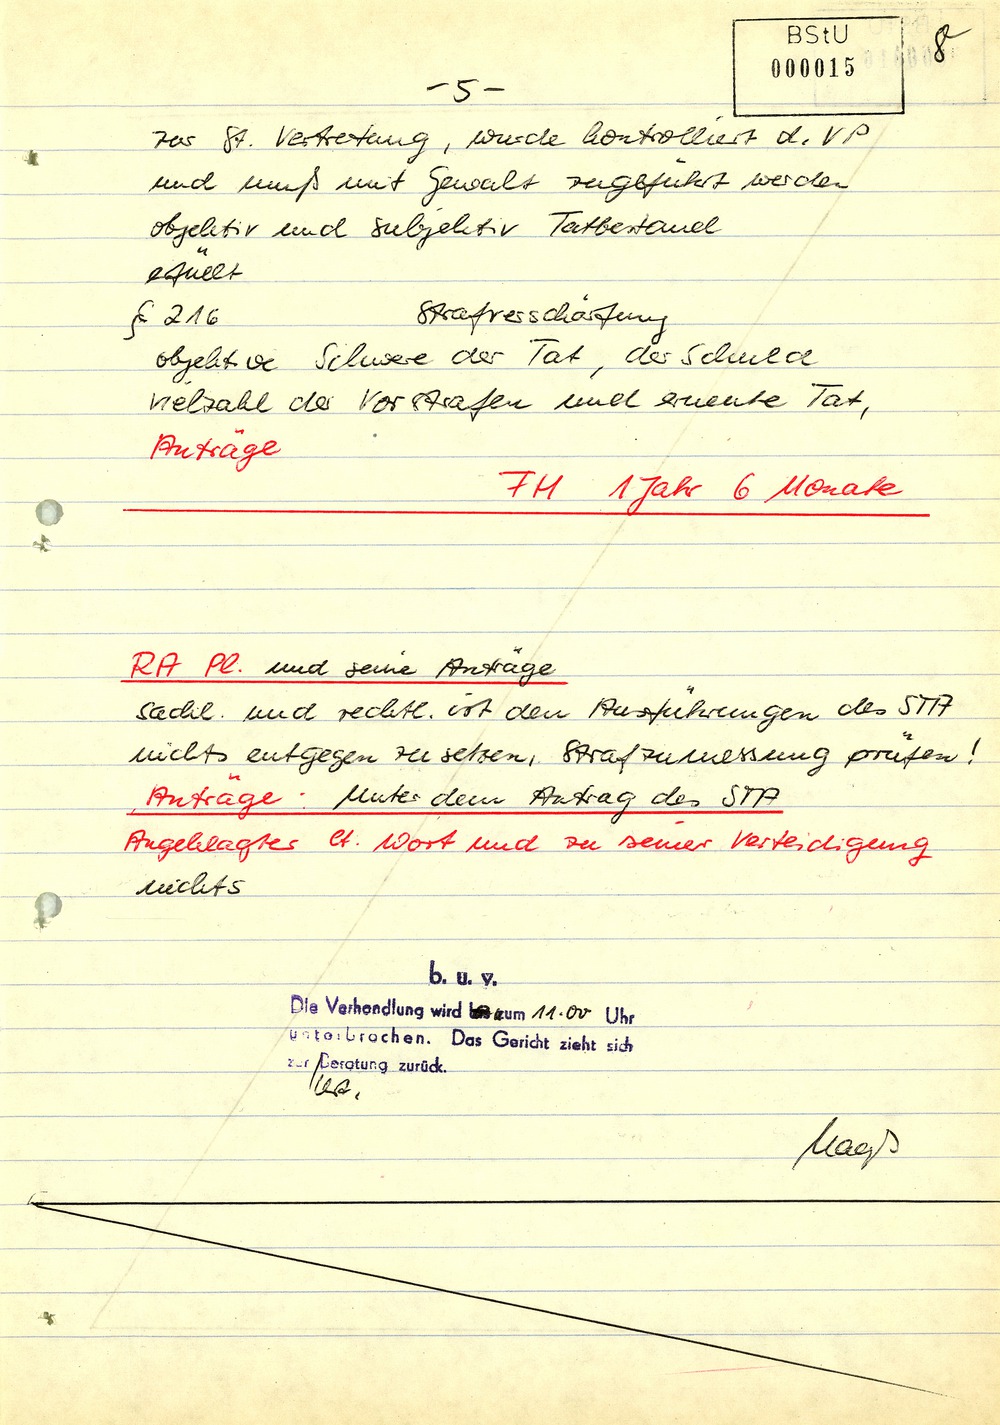 BStU
000015
8
- 5 -
zur St. Vertretung, wurde kontrolliert d. VP
und muß mit Gewalt zugeführt werden
objektiv und subjektiv Tatbestand
erfüllt
§ 216 Strafverschärfung
objektive Schwere der Tat, der Schuld
vielzahl der Vorstrafen und erneute Tat,
Anträge
FH 1 Jahr 6 Monate
RA Pl. und seine Anträge
sachl. und rechtl. ist den Ausführungen des STA
nichts entgegen zu setzen, Strafzumessung prüfen!
Anträge: Unter dem Antrag des STA
Angeklagter lt. Wort und zu seiner Verteidigung
nichts
b. u. v.
Die Verhandlung wird zum 11.00 Uhr
unterbrochen. Das Gericht zieht sich
zur Beratung zurück.